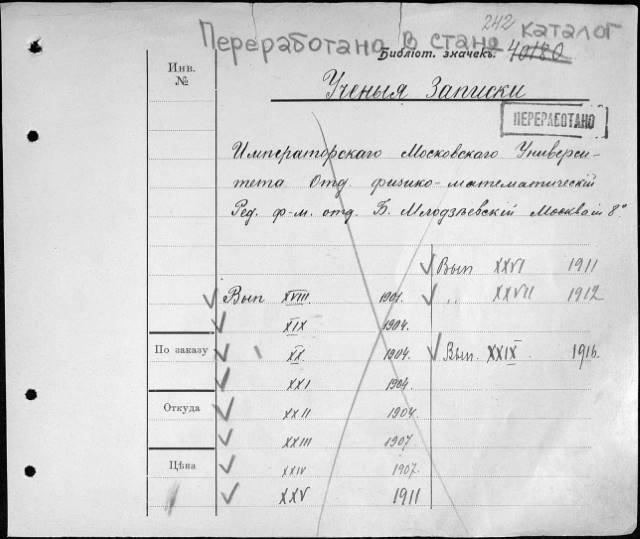 Переработано в стано каталог
242
Библіот. значекъ. 40180
Инв.
№
Ученыя Записки
ПЕРЕРАБОТАНО
Императорскаго Московскаго Универси-
тета Отд. физико-математическій
Ред. ф-м. отд. Б. Млодзѣевскій Москва 8°
Вып XXVI 1911
Вып XVIII. 1901. „ XXVII 1912
XIX 1904.
По заказу XX. 1904. Вып. XXIX 1916.
XXI 1904
Откуда XXII 1904.
XXIII 1907
Цѣна XXIV 1907.
XXV 1911